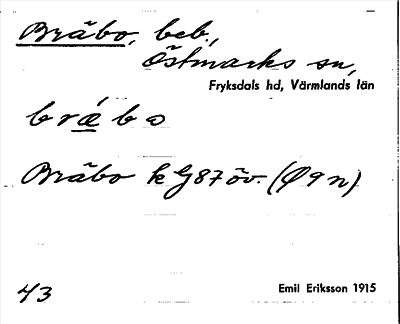 Bräbo, beb.,
Östmarks sn,
Fryksdals hd, Värmlands län
bræ´bo
Bräbo k G87 öv. (Q9n)
43
Emil Eriksson 1915